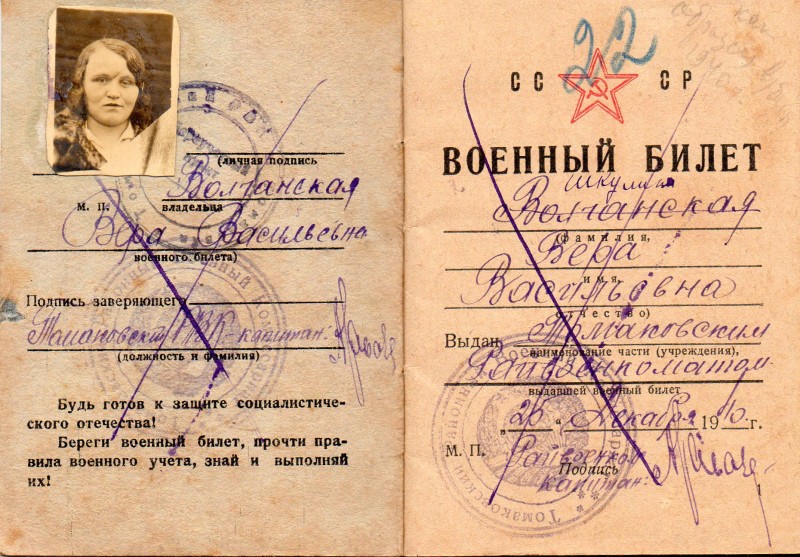 (личная подпись
Волчанская
М. П. владельца
Вера Васильевна
военного билета)
Подпись заверяющего
Томаковский РВК - капитан:
(должность и фамилия)
Будь готов к защите социалистиче-
ского отечества!
Береги военный билет, прочти пра-
вила военного учета, знай и выполняй
их!
22
СС СР
ВОЕННЫЙ БИЛЕТ
Волчанская
(фамилия,
Вера
имя,
Васильевна
отчество)
Выдан Томаковским
наименование части (учреждения),
Райвоенкоматом
выдавшей военный билет
"26" Декабря 1940г.
М. П. Райвоенком
Подпись
капитан: